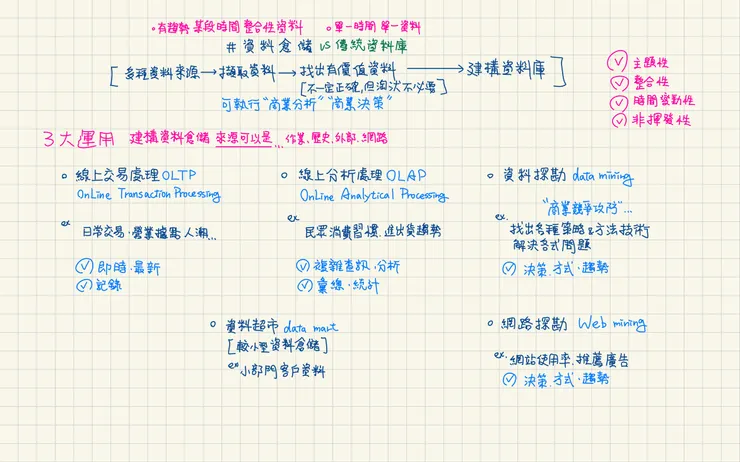 •有趨勢 某段時間 整合性資料 •單一時間 單一資料
# 資料倉儲 vs 傳統資料庫
[多種資料來源→擷取資料→找出有價值資料→建構資料庫]
[不一定正確,但淘汰不必要]
可執行"商業分析""商業決策"
主題性
整合性
時間變動性
非揮發性
3大運用 建構資料倉儲 來源可以是... 作業、歷史、外部、網路
線上交易處理OLTP
OnLine Transaction Processing
ex
日常交易·營業據點人潮...
即時·最新
記錄
線上分析處理OLAP
OnLine Analytical Processing
ex
民眾消費習慣、進出貨趨勢
複雜查訊·分析
彙總·統計
資料探勘 data mining
"商業競爭攻防"...
ex.
找出各種策略&方法技術
解決各式問題
決策·方式·趨勢
資料超市 data mart
[較小型資料倉儲]
ex 小部門客戶資料
網路探勘 Web mining
ex. 網站使用率、推薦廣告
決策·方式·趨勢